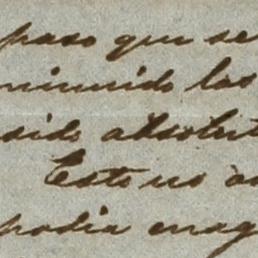 paso que se
minuido las
sido absolut
Esto no o
podia enag